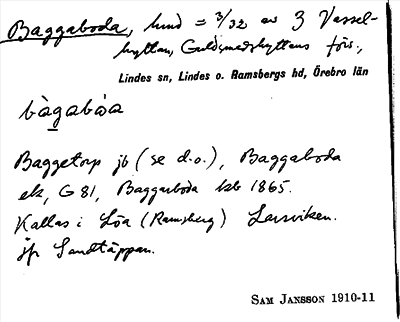 Baggaboda, hmd = 3/32 av 3 Vassel-
hyttan, Guldsmedshyttans förs.,
Lindes sn, Lindes o. Ramsbergs hd, Örebro län
bàgabòa
Baggetorp jb (se d.o.), Baggaboda
ek, G 81, Baggarboda kb 1865.
Kallas i Löa (Ramsberg) Larsviken.
jfr Sandtäppan.
SAM JANSSON 1910-11